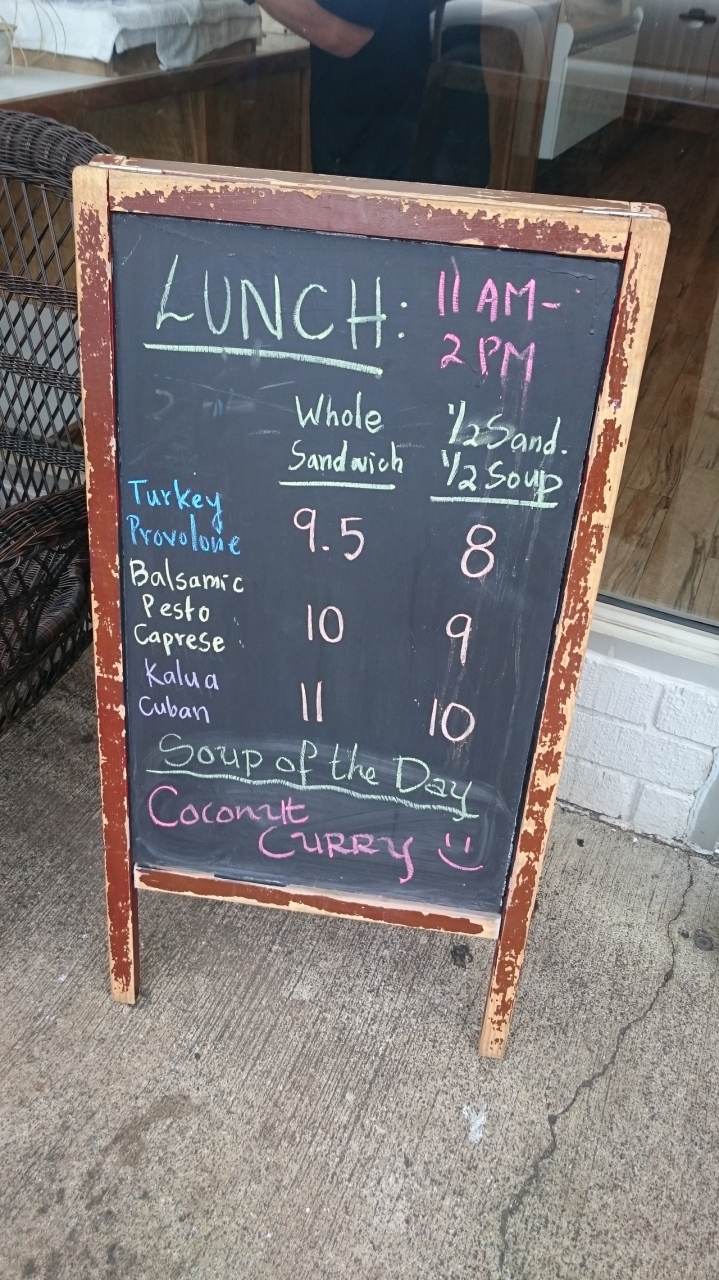 LUNCH: 11 AM-
2 PM
Whole ½ Sand.
Sandwich ½ Soup
Turkey
Provolone 9.5 8
Balsamic
Pesto 10 9
Caprese
Kalua
Cuban 11 10
Soup of the Day
Coconut
CURRY :)